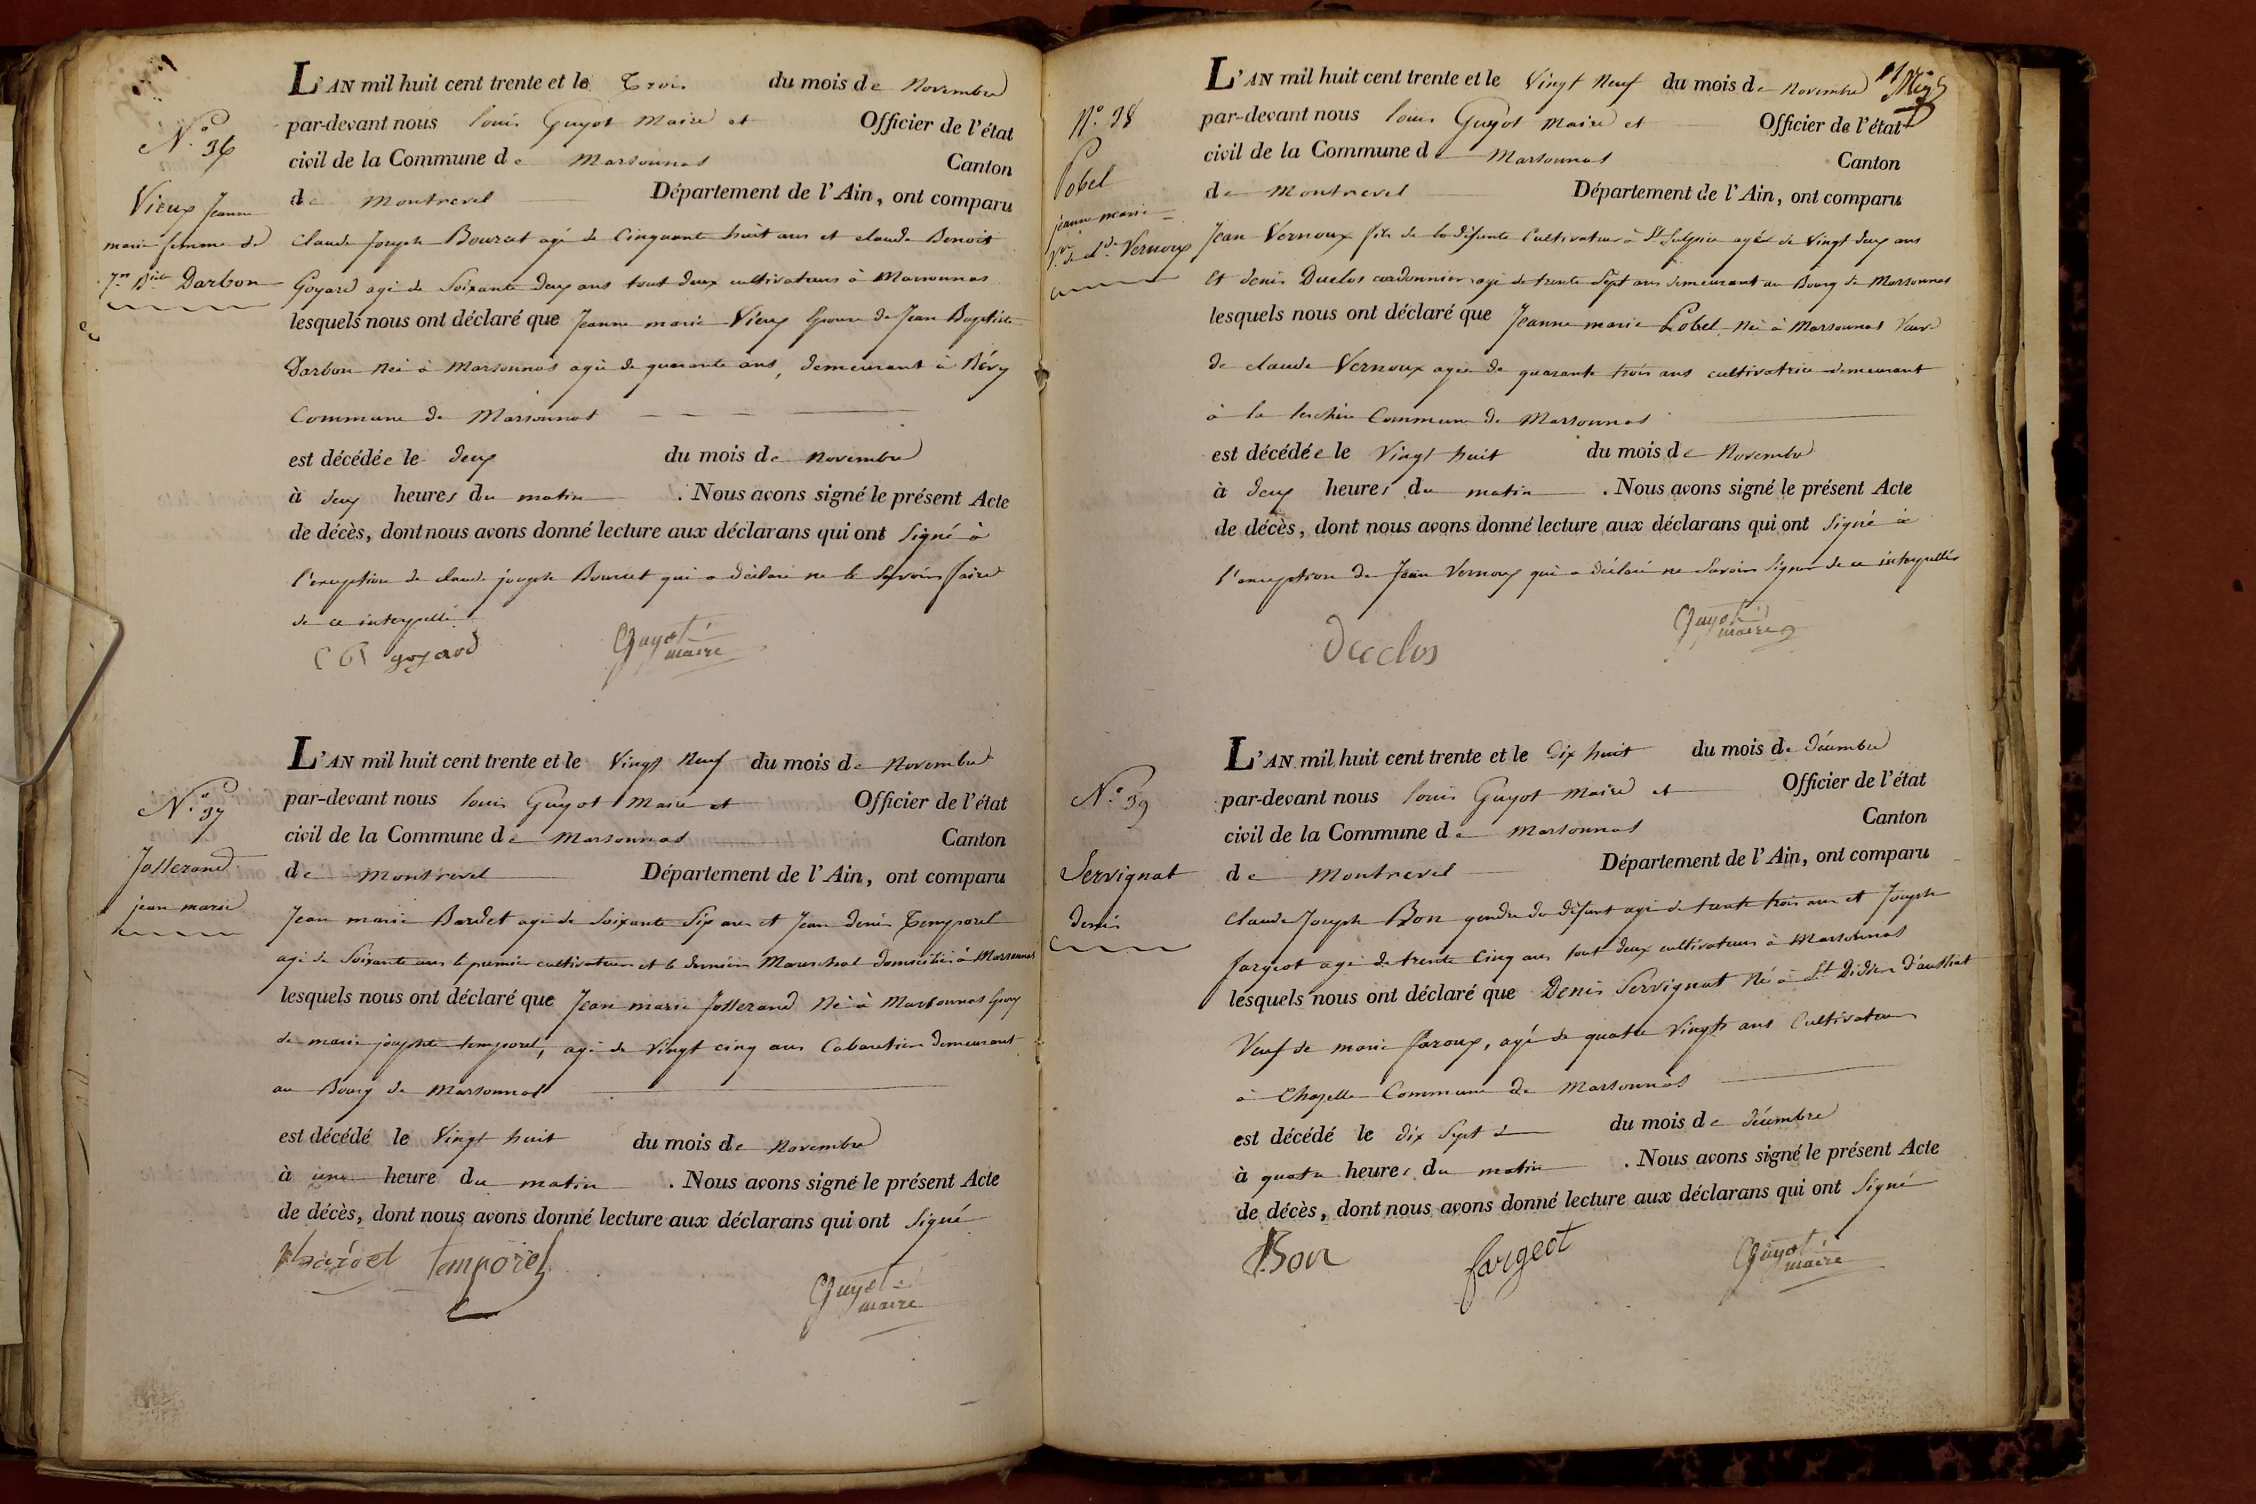 N.o 36
Vieux Jeanne
marie femme de
Jn Bte Darbon
L'AN mil huit cent trente et le Trois du mois de Novembre
par-devant nous Louis Guyot Maire et Officier de l'état
civil de la Commune de Marsonnas Canton
de Montrevel Département de l'Ain, ont comparu
Claude Joseph Bourcet agé de Cinquante huit ans et claude Benoit
Goyard agé de Soixante deux ans tout deux cultivateurs à Marsonnas
lesquels nous ont déclaré que Jeanne marie Vieux Epouse de Jean Baptiste
Darbon Née à Marsonnas agée de quarante ans, demeurant à Béry
Commune de Marsonnas
est décédée le deux du mois de Novembre
à deux heures du matin. Nous avons signé le présent Acte
de décès, dont nous avons donné lecture aux déclarans qui ont Signé à
l'exception de claude joseph Bourcet qui a déclaré ne le Savoir faire
de ce interpellé
C B goyard Guyot maire
N.o 37
Jollerand
jean marie
L'AN mil huit cent trente et le Vingt Neuf du mois de Novembre
par-devant nous Louis Guyot Maire et Officier de l'état
civil de la Commune de Marsonnas Canton
de Montrevel Département de l'Ain, ont comparu
Jean marie Bardet agé de Soixante Six ans et Jean denis Temporel
agé de Soixante ans le premier cultivateur et le dernier Mareschal domiciliés à Marsonnas
lesquels nous ont déclaré que Jean marie Jollerand Né à Marsonnas Epoux
de marie josephte temporel, agé de Vingt cinq ans Cabaretier demeurant
au Bourg de Marsonnas
est décédé le Vingt huit du mois de Novembre
à une heure du matin. Nous avons signé le présent Acte
de décès, dont nous avons donné lecture aux déclarans qui ont Signé
temporel
Guyot maire
N.o 38
Pobel
jeanne marie
Ve de Cde Vernoux
L'AN mil huit cent trente et le Vingt Neuf du mois de Novembre
par-devant nous Louis Guyot Maire et Officier de l'état
civil de la Commune de Marsonnas Canton
de Montrevel Département de l'Ain, ont comparu
Jean Vernoux fils de la défunte Cultivateur à St Sulpice agé de Vingt deux ans
Et denis Duclos cordonnier agé de trente Sept ans demeurant au Bourg de Marsonnas
lesquels nous ont déclaré que Jeanne marie Pobel Née à Marsonnas Veuve
de claude Vernoux agée de quarante trois ans cultivatrice demeurant
à la Commune de Marsonnas
est décédée le Vingt huit du mois de Novembre
à deux heures du matin. Nous avons signé le présent Acte
de décès, dont nous avons donné lecture aux déclarans qui ont Signé à
l'exception de Jean Vernoux qui a déclaré ne Savoir Signer de ce interpellés
Duclos
Guyot maire
N.o 39
Servignat
denis
L'AN mil huit cent trente et le Dix huit du mois de Décembre
par-devant nous Louis Guyot Maire et Officier de l'état
civil de la Commune de Marsonnas Canton
de Montrevel Département de l'Ain, ont comparu
Claude Joseph Bon gendre du défunt agé de trente trois ans et Joseph
fargeot agé de trente Cinq ans tout deux cultivateurs à Marsonnas
lesquels nous ont déclaré que Denis Servignat Né à St Didier d'aussiat
Veuf de marie faroux, agé de quatre Vingts ans Cultivateur
à Chazelle Commune de Marsonnas
est décédé le dix Sept du mois de décembre
à quatre heures du matin. Nous avons signé le présent Acte
de décès, dont nous avons donné lecture aux déclarans qui ont Signé
Bon fargeot Guyot maire